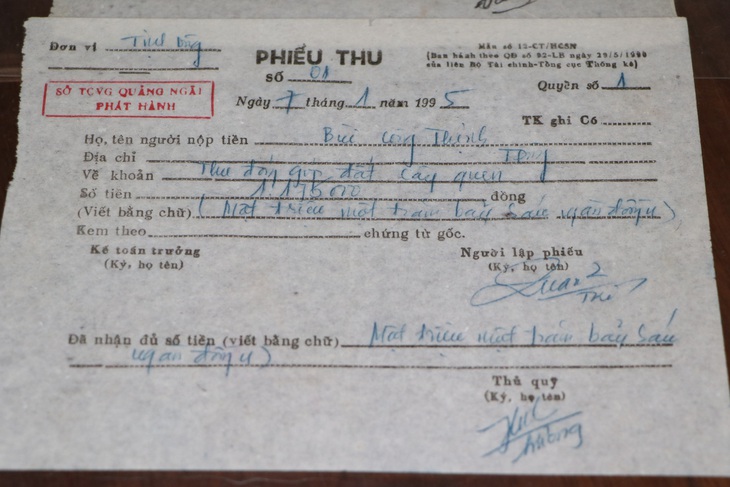 Đơn vị Tịnh Đông
PHIẾU THU
Mẫu số 12-CT/HCSN
(Ban hành theo QĐ số 92-LB ngày 29/5/1990
của liên Bộ Tài chính-Tổng cục Thống kê)
SỞ TCVG QUẢNG NGÃI
PHÁT HÀNH
Số 01
Quyển số 1
Ngày 7 tháng 1 năm 1995
TK ghi Có
Họ, tên người nộp tiền Bùi Công Thịnh
Địa chỉ
Về khoản Thu đóng góp đất
Số tiền đồng
(Viết bằng chữ) (Một triệu một trăm bảy sáu ngàn đồng)
Kem theo chứng từ gốc.
Kế toán trưởng
(Ký, họ tên)
Người lập phiếu
(Ký, họ tên)
Đã nhận đủ số tiền (viết bằng chữ) Một triệu một trăm bảy sáu
ngàn đồng)
Thủ quỹ
(Ký, họ tên)